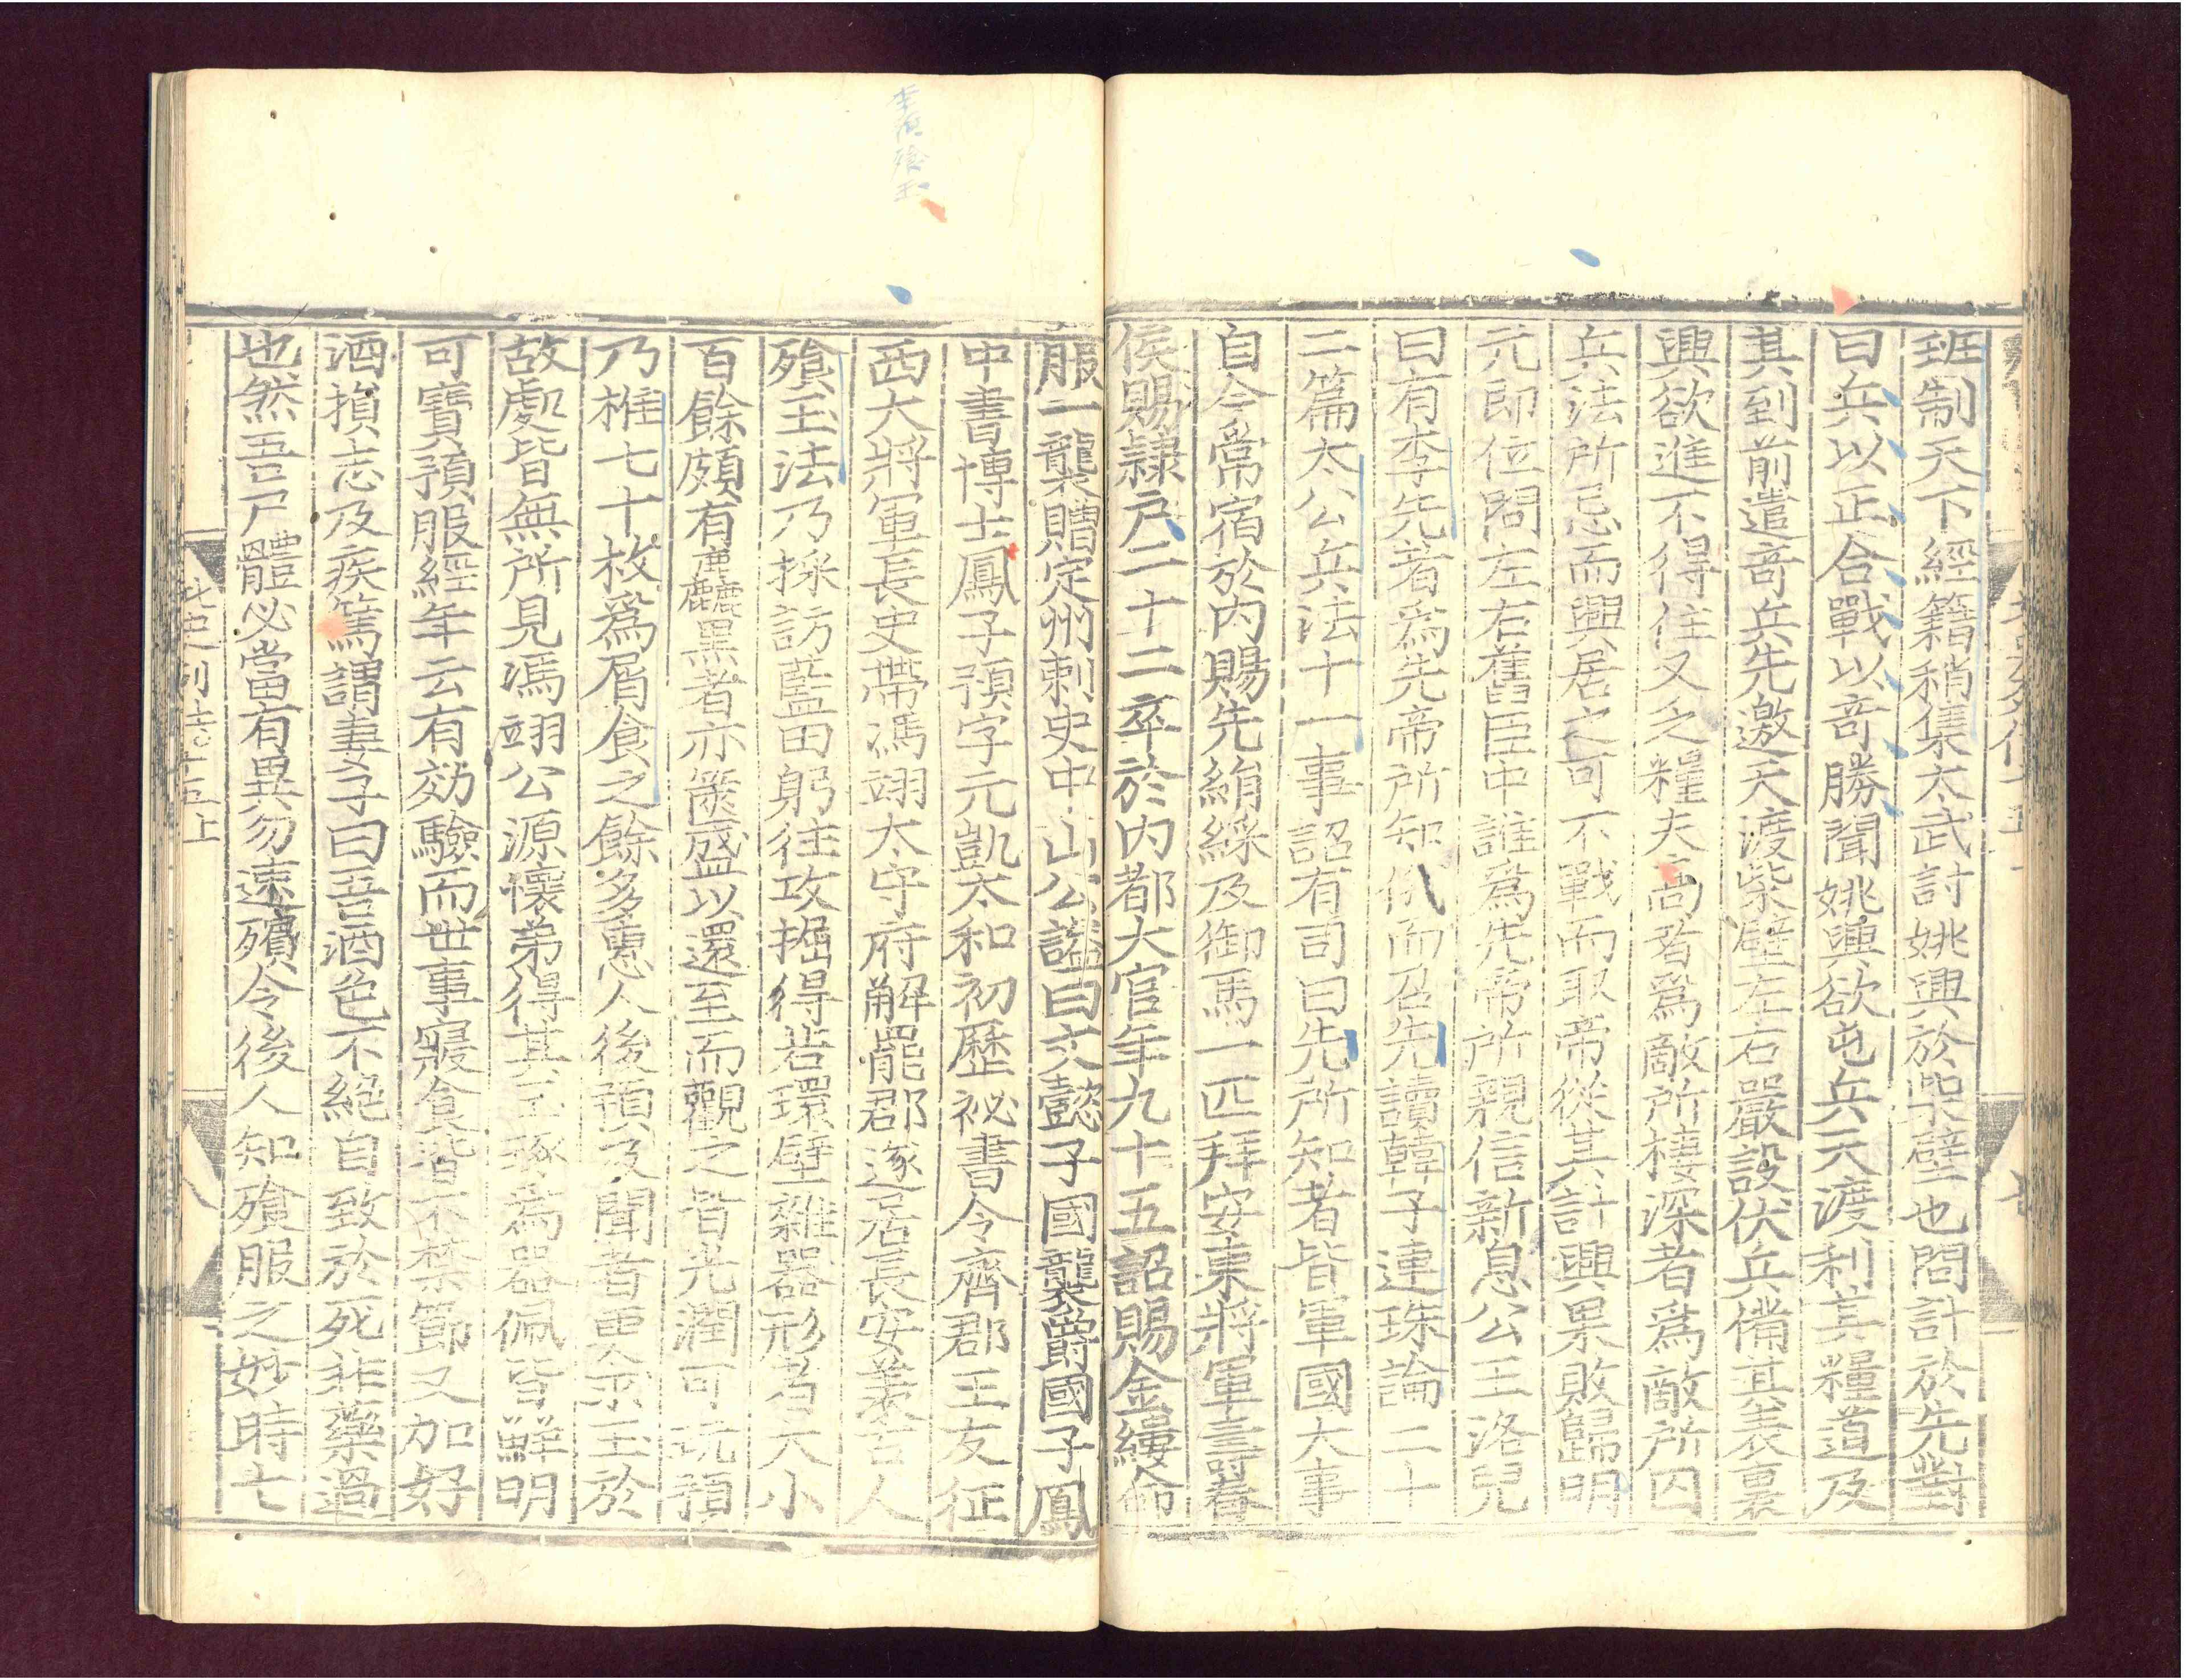 班制天下經籍稍集太武討姚興於柴壁也問計於先對
曰兵以正合戰以奇勝聞姚興欲屯兵天渡利其糧道及
其到前遣奇兵先邀天渡柴壁左右嚴設伏兵備其表裏
興欲進不得住又乏糧夫高者爲敵所棲深者爲敵所囚
兵法所忌而興居之可不戰而取帝從其計興果敗歸明
元即位問左右舊臣中誰爲先帝所親信新息公王洛兒
曰有李先者爲先帝所知俄而召先讀韓子連珠論二十
二篇太公兵法十一事詔有司曰先所知者皆軍國大事
自今常宿於内賜先絹綵及御馬一匹拜安東將軍壽春
侯賜隸户二十二卒於内都大官年九十五詔賜金縷命
服一襲贈定州刺史中山公謚曰文懿子國襲爵國子鳳
中書博士鳳子預字元凱太和初歷祕書令齊郡王友征
西大將軍長史帶馮翊太守府解罷郡遂居長安羨古人
飡玉法乃採訪藍田躬往攻掘得若環璧雜器形者大小
百餘頗有麤黑者亦篋盛以還至而觀之皆光潤可玩預
乃椎七十枚爲屑食之餘多惠人後預及聞者更求玉於
故處皆無所見馮翊公源懷弟得其玉琢爲器佩皆鮮明
可寶預服經年云有効驗而世事寢食皆不禁節又加好
酒損志及疾篤謂妻子曰吾酒色不絕自致於死非藥過
也然吾尸體必當有異勿速殯令後人知飡服之妙時七
北史列傳十五上
八